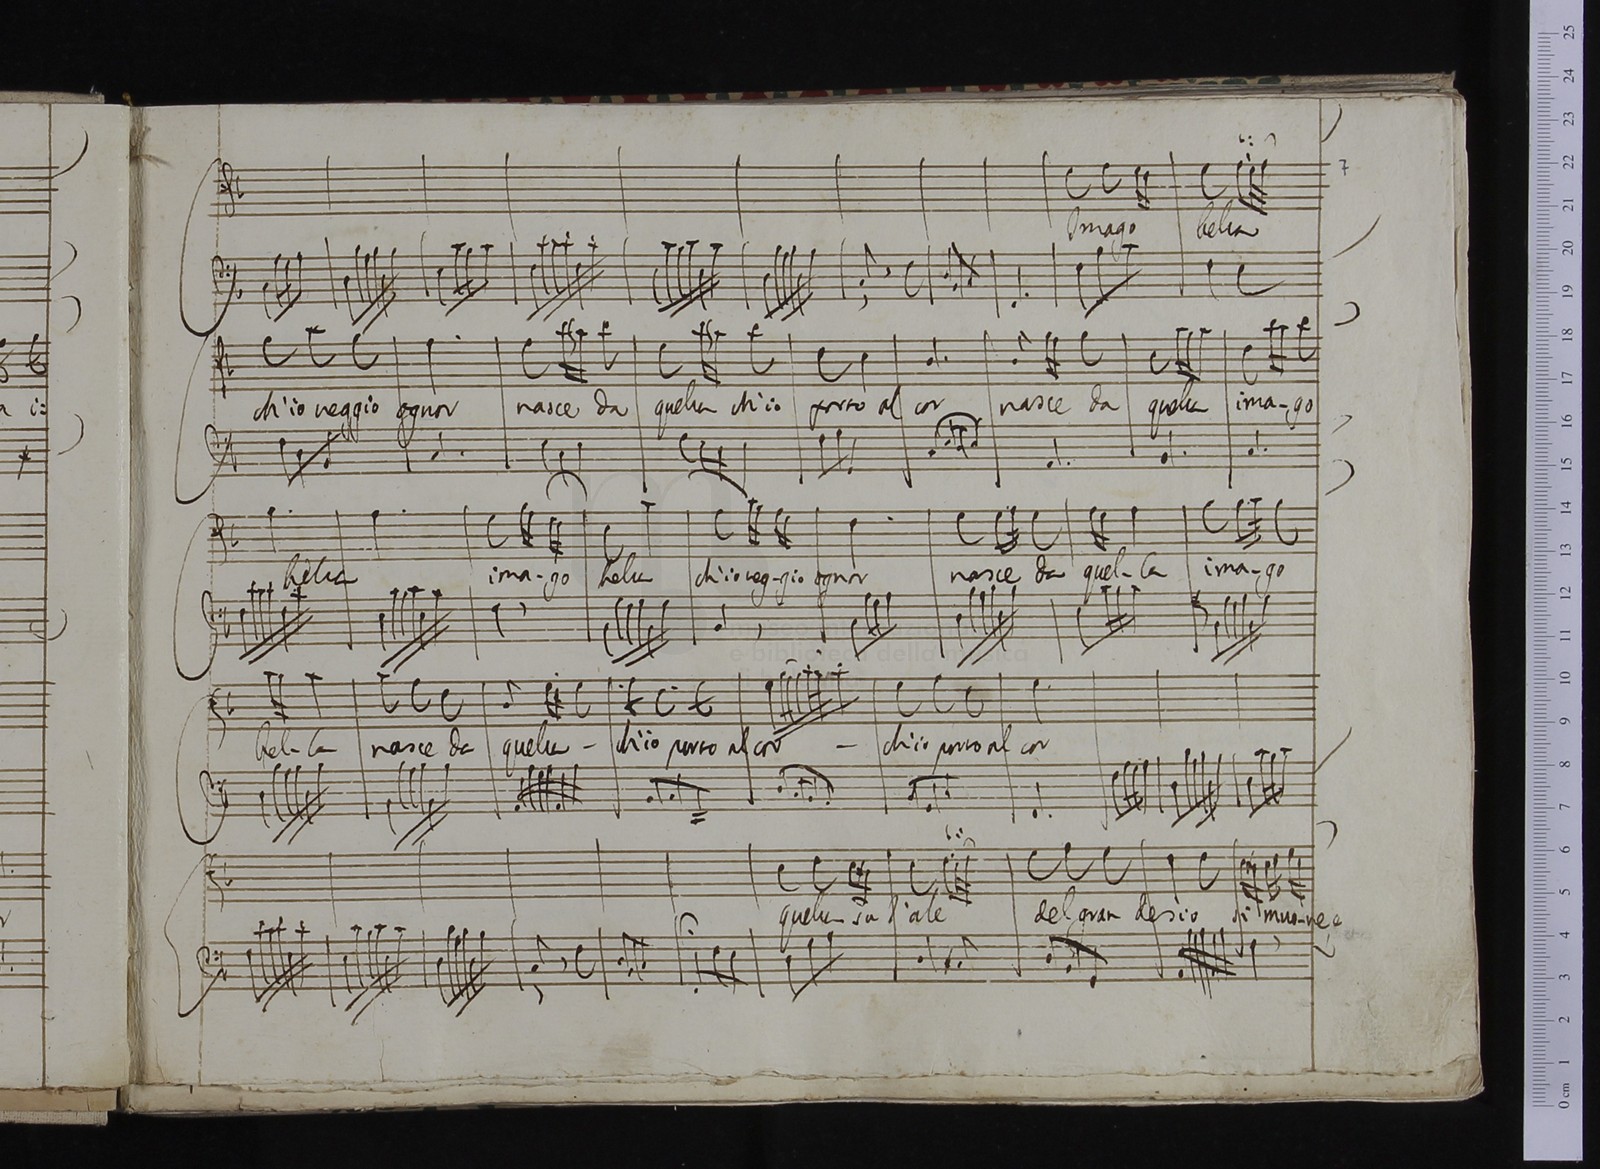 7
Imago bella
ch'io veggio ognor nasce da quella ch'io porto al cor nasce da quella ima-go
bella ima-go bella ch'io veg-gio ognor nasce da quel-la ima-go
bel-la nasce da quella - ch'io porto al cor - ch'io porto al cor
quella su l'ale del gran desio si muo-ve e
museo internazionale
e biblioteca della musica
25
24
23
22
21
20
19
18
17
16
15
14
13
12
11
10
9
8
7
6
5
4
3
2
1
0 cm